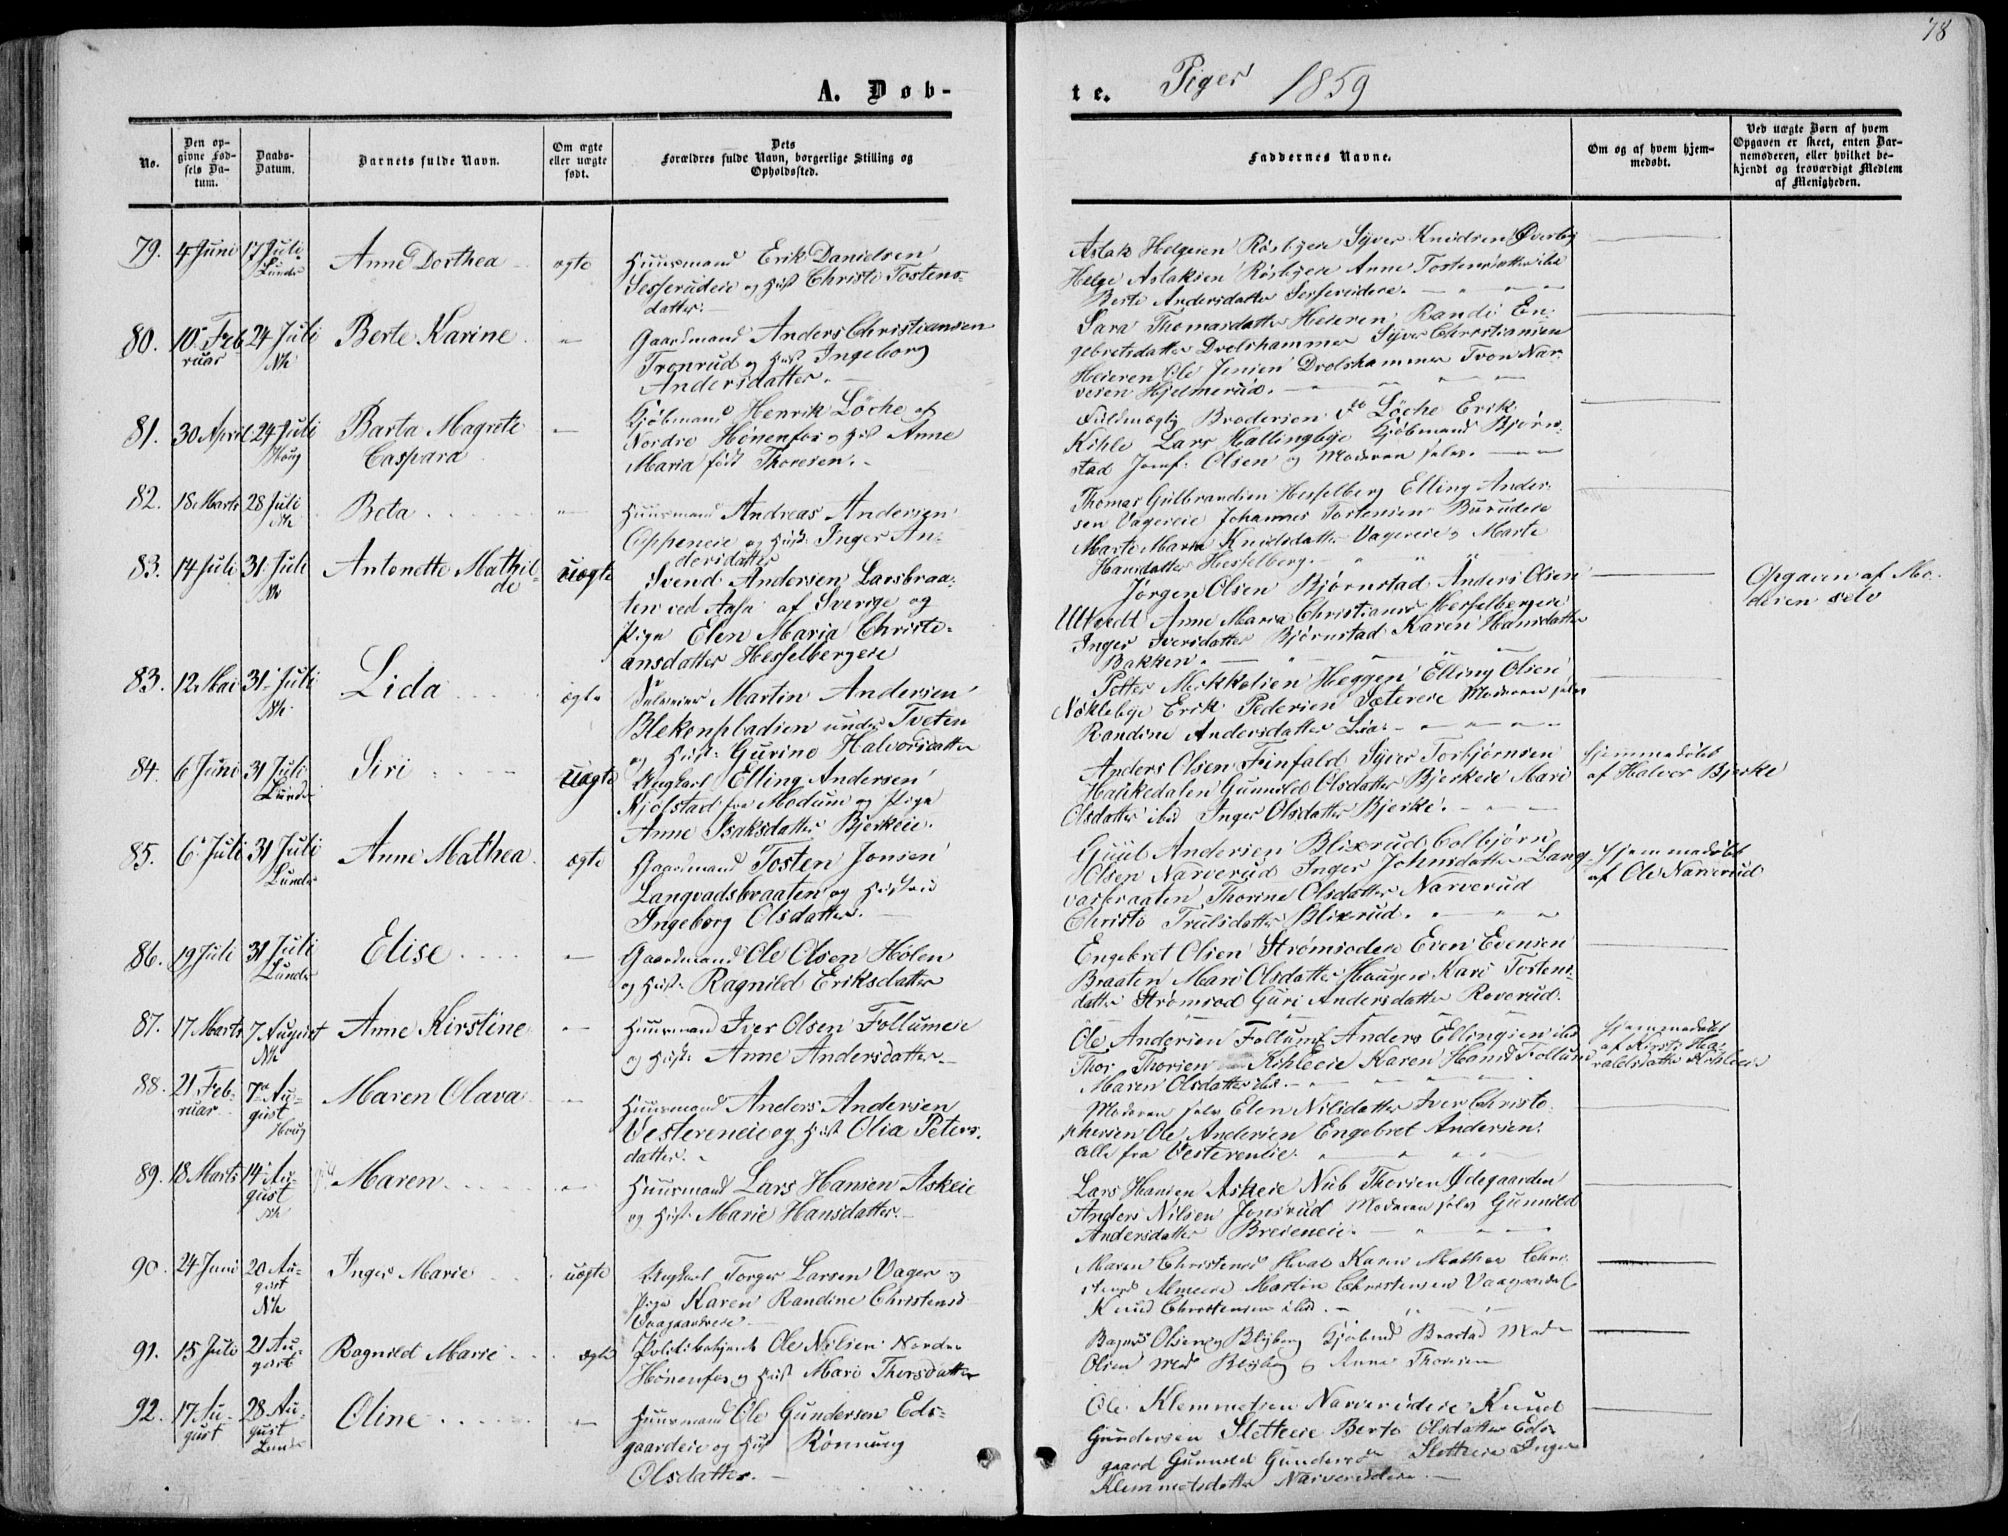 78
A. Døb-
te.
Piger 1859
No.
Den op-
givne Fød-
sels Da-
tum.
Daabs-
Datum.
Barnets fulde Navn.
Om ægte
eller uægte
født.
Dets
Forældres fulde Navn, borgerlige Stilling og
Opholdssted.
Faddernes Navne.
Om og af hvem hjem-
medøbt.
Ved uægte Børn af hvem
Opgaven er skeet, enten Bar-
nemoderen, eller hvilket be-
kjendt og troværdigt Medlem
af Menigheden.
79. 4 Juni 17 Juli Lunder Anne Dorthea ægte
Huusmand Erik Danielsen
Sesserudeie og Hust Christi Tostens-
datter.
Aslak Helgesen Røsbjeie Syver Knudsen Øverby
Helge Aslaksen Røsbjeie Anne Tostensdatter ibd
Berte Andersdatter Sesserudeie.
80. 10 Feb
ruar 24 Juli Nk Berte Karine "
Gaardmand Anders Christiansen
Tronrud og Hust Ingeborg
Andersdatter.
Sara Thomasdatter Heieren Randi En-
gebretsdatter Drolshammer Syver Christiansen
Heieren Ole Jensen Drolshammer Tron Nar-
vesen Hjelmerud.
81. 30 April 24 Juli Houg Barta Magrete
Caspara "
Kjøbmand Henrik Löche af
Nordre Hönenfos og Hust Anne
Maria født Thoresen.
Fuldmægtig Brodersen Löche Erik
Kihle Lars Hallingbye Kjöbmand Bjørn-
stad Jomf: Olsen og Moderen selv.
82. 18 Marts 28 Juli Nk Beta "
Huusmand Andreas Andersen
Oppeneie og Hust: Inger An-
dersdatter
Thomas Gulbrandsen Hesselberg Elling Ander-
sen Vagereie Johannes Tostensen Burudeie
Marte Maria Knudsdatter Vagereie Marte
Hansdatter Hesselberg.
83. 14 Juli 31 Juli Nk Antonette Mathil-
de uægte
Svend Andersen Larsbraa-
ten ved Aasa af Sverige og
Pige Elen Maria Christi-
ansdatter Hesselbergeie
Jörgen Olsen Bjørnstad Anders Olsen
Ultvedt Anne Maria Christians Hesselbergeie
Inger Iversdatter Bjørnstad Karen Hansdatter
Bakken.
Opgaven af Mo-
deren selv
83. 12 Mai 31 Juli Nk Lida ægte
Selveier Martin Andersen
Blekenpladsen under Tveten
og Hust: Gurine Halvorsdatter
Petter Mikkelsen Heggen Elling Olsen
Nøklebye Erik Pedersen Sætereie Moderen selv
Randine Andersdatter Lia.
84. 6 Juni 31 Juli Lunder Siri uægte
Ungkarl Elling Andersen
Kjölstad fra Modum og Pige
Anne Isaksdatter Bjerkeie.
Anders Olsen Finsald Syver Torbjørnsen
Haukedalen Gunnild Olsdatter Bjerkeie Mari
Olsdatter ibd Inger Olsdatter Bjerke.
Hjemmedøbt
af Halvor Bjerke
85. 6 Juli 31 Juli Lunder Anne Mathea ægte
Gaardmand Tosten Jonsen
Langvadsbraaten og Hustru
Ingeborg Olsdatter.
Guul Andersen Blixrud Colbjørn
Olsen Narverud Inger Johnsdatter Lang-
vasbraaten Thorine Olsdatter Narverud
Christi Trulsdatter Blixrud.
Hjemmedøbt
af Ole Narverud
86. 19 Juli 31 Juli Lunder Elise "
Gaardmand Ole Olsen Hølen
og Hust: Ragnild Eriksdatter
Engebret Olsen Strømsodeie Even Evensen
Braaten Mari Olsdatter Haugen Kari Tostens-
datter Strømsod Guri Andersdatter Roverud.
87. 17 Marts 7 August Nk Anne Kirstine "
Huusmand Iver Olsen Follumeie
og Hust: Anne Andersdatter
Ole Andersen Follum Anders Ellingsen ibd
Thor Thorsen Kihleeie Karen Hansd Follum
Maren Olsdatter ibd.
Hjemmedøbt
af Kirsti Ha-
raldsdatter Kihleeie
88. 21 Feb-
ruar 7 Au-
gust Houg Maren Olava "
Huusmand Anders Andersen
Vestereneie og Hust Olia Peters-
datter.
Moderen selv Elen Nilsdatter Iver Christo-
phersen Ole Andersen Engebret Andersen
alle fra Vestereneie.
89. 18 Marts 14 Au-
gust Nk Maren "
Huusmand Lars Hansen Askeie
og Hust: Marie Hansdatter.
Lars Hansen Askeie Nub Thorsen Ødegaarden
Anders Nilsen Jonsrud Moderen selv Gunnild
Andersdatter Breieneie.
90. 24 Juni 20 Au-
gust Nk Inger Marie uægte
Ungkarl Torger Larsen Vager og
Pige Karen Randine Christensd
Vaagaardseie
Maren Christensd Hval Karen Mathea Chri-
stensd Almeeie Martin Christensen Vaagaard
Knud Christensen ibd.
91. 15 Juli 21 Au-
gust Ragnild Marie ægte
Politibetjent Ole Nilsen Nordre
Hönenfos og Hust Mari Thorsdatter
Bager Olsen og Blyberg Kjøbmd Braastad Mad
Olsen Mad Blyberg og Anne Thoresen
92. 17 Au-
gust 28 Au-
gust Lunder Oline "
Huusmand Ole Gundersen Eds-
gaardeie og Hust Rönnaug
Olsdatter.
Ole Klemmetsen Narverudeie Knud
Gundersen Sletteeie Berte Olsdatter Eds-
gaard Gunnild Gundersd Sletteeie Inger
Klemmetsdatter Narverudeie